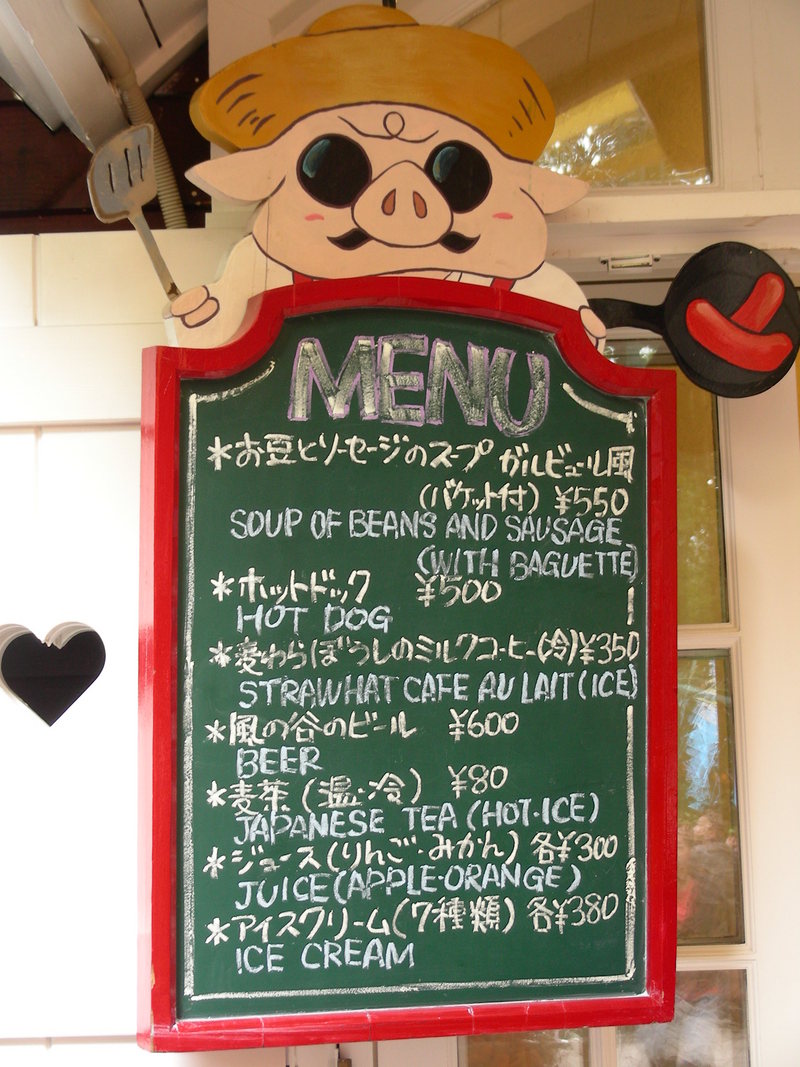 MENU
*お豆とソーセージのスープ ガルビュール風
(バケット付) ¥550
SOUP OF BEANS AND SAUSAGE
(WITH BAGUETTE)
*ホットドック ¥500
HOT DOG
*麦わらぼうしのミルクコーヒー(冷)¥350
STRAWHAT CAFE AU LAIT(ICE)
*風の谷のビール ¥600
BEER
*麦茶(温・冷) ¥80
JAPANESE TEA(HOT・ICE)
*ジュース(りんご・みかん)各¥300
JUICE(APPLE・ORANGE)
*アイスクリーム(7種類)各¥380
ICE CREAM